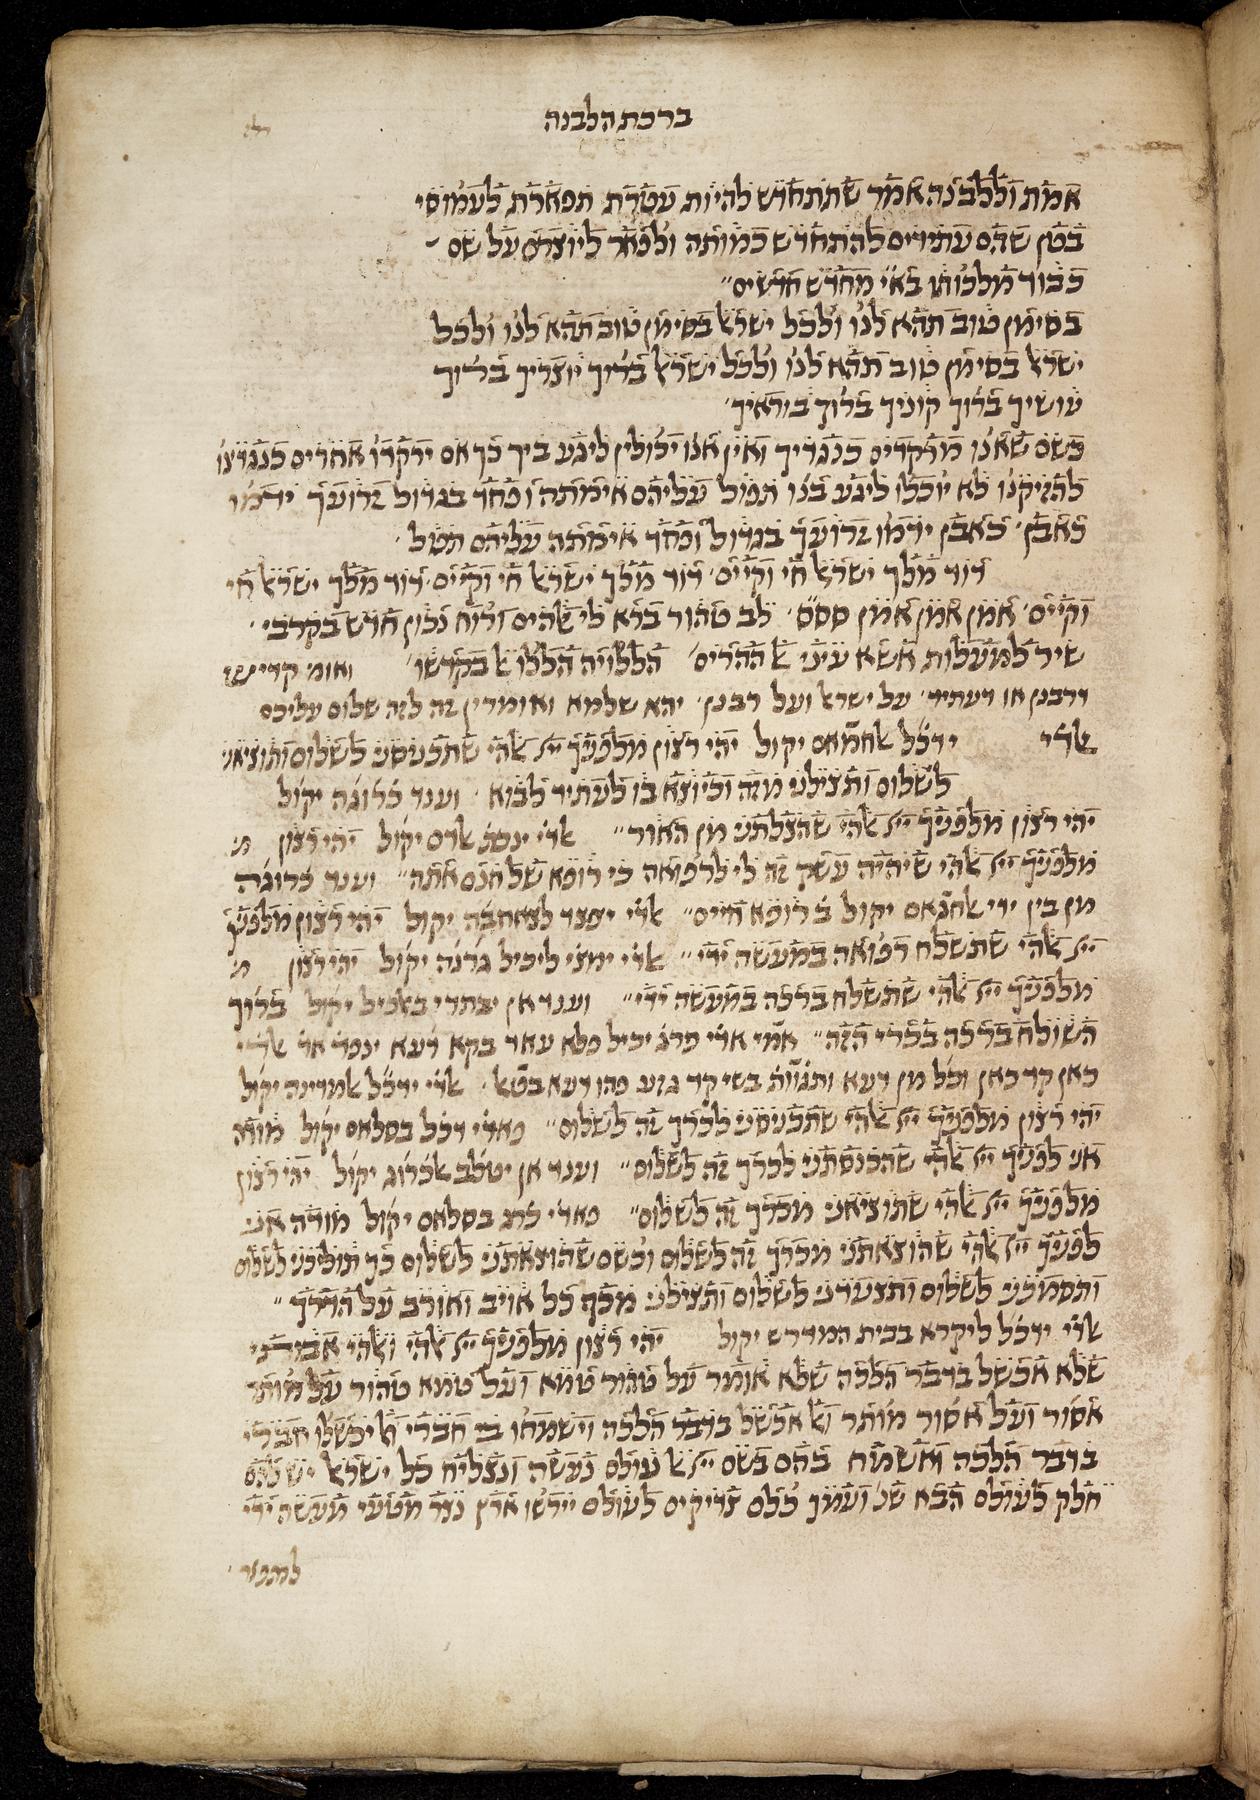 ברכת הלבנה
אמת וללבנה אמר שתתחדש להיות עטרת תפארת לעמוסי
בטן שהם עתידים להתחדש כמותה ולפאר ליוצרם על שם
כבוד מלכותו בא״י מחדש חדשים״
בסימן טוב תהא לנו ולכל ישראל בסימן טוב תהא לנו ולכל
ישראל בסימן טוב תהא לנו ולכל ישראל ברוך יוצריך ברוך
עושיך ברוך קוניך ברוך בוראיך׳
כשם שאנו מרקדים כנגדיך ואין אנו יכולין ליגע ביך כך אם ירקדו אחרים כנגדינו
להזיקנו לא יוכלו ליגע בנו תפול עליהם אימתה ופחד בגדול זרועך ידמו
כאבן׳ כאבן ידמו זרועך בגדול ופחד אימתה עליהם תפול׳
דוד מלך ישראל חי וקיים׳ דוד מלך ישראל חי וקיים׳ דוד מלך ישראל חי
וקיים׳ אמן אמן אמן ססס׳ לב טהור ברא לי אלהים ורוח נכון חדש בקרבי׳
שיר למעלות אשא עיני אל ההרים׳ הללויה הללו אל בקדשו׳ ואומ׳ קדיש
דרבנן או דעתיד׳ על ישראל ועל רבנן׳ יהא שלמא ואומרין זה לזה שלום עליכם
אלדי ידכל אלחמאם יקול יהי רצון מלפניך ייי אלהי שתכניסני לשלום ותוציאני
לשלום ותצילני מזה וכיוצא בו לעתיד לבוא׳ וענד כרוגה יקול
יהי רצון מלפניך ייי אלהי שהצלתני מן האור״ אלדי ינפצ אלדם יקול יהי רצון מ׳
מלפניך ייי אלהי שיהיה עסק זה לי לרפואה כי רופא של חנם אתה״ וענד כרוגה
מן בין ידי אלחגאם יקול ב׳ רופא חיים״ אלדי יפצד לצאחבה יקול יהי רצון מלפניך
ייי אלהי שתשלח רפואה במעשה ידי״ אלדי ימצי ליכיל גרנה יקול יהי רצון מ׳
מלפניך ייי אלהי שתשלח ברכה במעשה ידי״ וענד אן יבתדי באלכיל יקול ברוך
השולח ברכה בכרי הזה״ אמי אלדי פרג יכיל פלא עאד בקא דעא
כאן קד כאן וכל מן דעא אלדי ידכל אלמדינה יקול
יהי רצון מלפניך ייי אלהי שתכניסני לכרך זה לשלום״ פאדי דכל בסלאם יקול מודה
אני לפניך ייי אלהי שהכנסתני לכרך זה לשלום״ וענד אן יטלב אלכרוג יקול יהי רצון
מלפניך ייי אלהי שתוציאני מכרך זה לשלום״ פאדי כרג בסלאם יקול מודה אני
לפניך ייי אלהי שהוצאתני מכרך זה לשלום וכשם שהוצאתני לשלום כך תוליכני לשלום
ותסמכני לשלום ותצעדני לשלום ותצילני מכף כל אויב ואורב על הדרך״
אלדי ידכל ליקרא בבית המדרש יקול יהי רצון מלפניך ייי אלהי ואלהי אבותי
שלא אכשל בדבר הלכה שלא אומר על טהור טמא ועל טמא טהור על מותר
אסור ועל אסור מותר ולא אכשל בדבר הלכה וישמחו בי חברי ולא יכשלו חברי
בדבר הלכה ואשמח בהם בשם ייי אל עולם נעשה ונצליח כל ישראל יש להם
חלק לעולם הבא שנ׳ ועמך כלם צדיקים לעולם יירשו ארץ נצר מטעי מעשה ידי
להתפאר׳